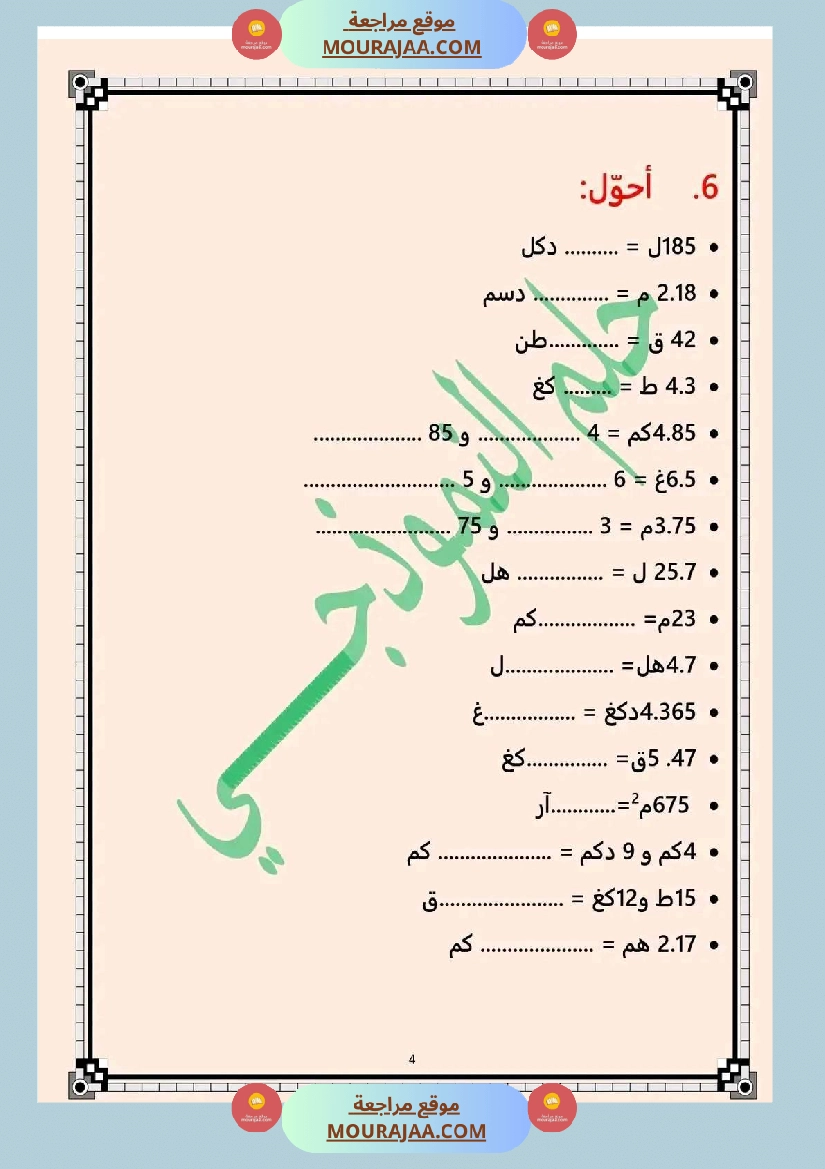 موقع مراجعة
MOURAJAA.COM
6. أحوّل:
• 185ل = .......... دكل
• 2.18 م = .............. دسم
• 42 ق = .............طن
• 4.3 ط = ......... كغ
• 4.85كم = 4 ................... و 85 ....................
• 6.5غ = 6 .................... و 5 ............................
• 3.75م = 3 ................ و 75 .........................
• 25.7 ل = ................ هل
• 23م= ..................كم
• 4.7هل= ....................ل
• 4.365دكغ = .................غ
• 47. 5ق= ...............كغ
• 675م²=............آر
• 4كم و 9 دكم = ..................... كم
• 15ط و12كغ = .......................ق
• 2.17 هم = ..................... كم
حلم النموذجي
4
موقع مراجعة
MOURAJAA.COM